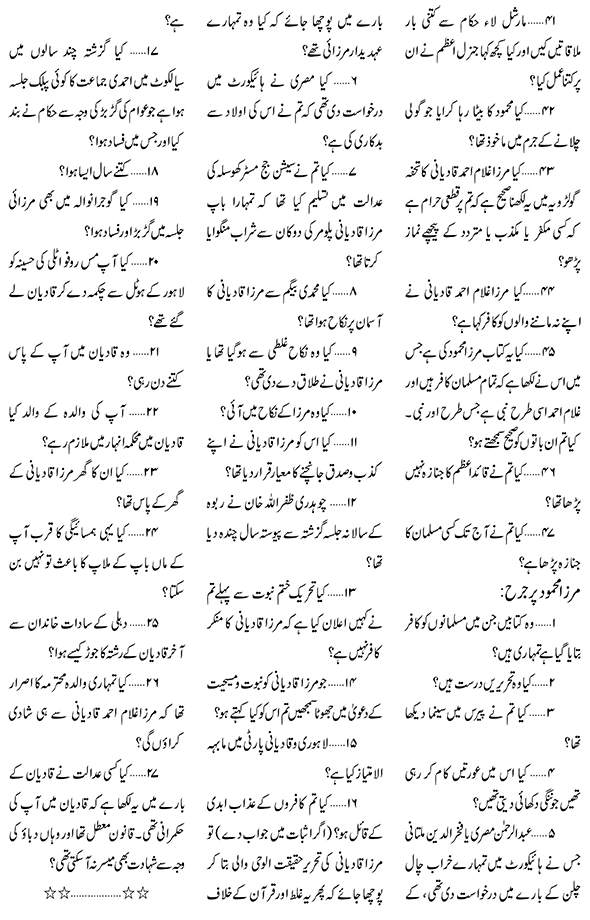 ۴۱......مارشل لاء حکام سے کتنی بار
ملاقاتیں کیں اور کیا کچھ کہا جنرل اعظم نے ان
پر کتنا عمل کیا؟
۴۲......کیا محمود کا بیٹا رہا کرایا جو گولی
چلانے کے جرم میں ماخوذ تھا؟
۴۳......کیا مرزا غلام احمد قادیانی کا تحفہ
گولڑویہ میں یہ لکھنا صحیح ہے کہ تم پر قطعی حرام ہے
کہ کسی مکفر یا مکذب یا متردد کے پیچھے نماز
پڑھو؟
۴۴......کیا مرزا غلام احمد قادیانی نے
اپنے نہ ماننے والوں کو کافر کہا ہے؟
۴۵......کیا یہ کتاب مرزا محمود کی ہے جس
میں اس نے لکھا ہے کہ تمام مسلمان کافر ہیں اور
غلام احمد اسی طرح نبی ہے جس طرح اور نبی۔
کیا تم ان باتوں کو صحیح سمجھتے ہو؟
۴۶......کیا تم نے قائد اعظم کا جنازہ نہیں
پڑھا تھا؟
۴۷......کیا تم نے آج تک کسی مسلمان کا
جنازہ پڑھا ہے؟
مرزا محمود پر جرح:
۱......وہ کتابیں جن میں مسلمانوں کو کافر
بتایا گیا ہے تمہاری ہیں؟
۲......کیا وہ تحریریں درست ہیں؟
۳......کیا تم نے پیرس میں سینما دیکھا
تھا؟
۴......کیا اس میں عورتیں کام کر رہی
تھیں جو ننگی دکھائی دیتی تھیں؟
۵......عبدالرحمٰن مصری یا فخر الدین ملتانی
جس نے ہائیکورٹ میں تمہارے خراب چال
چلن کے بارے میں درخواست دی تھی، کے
بارے میں پوچھا جائے کہ کیا وہ تمہارے
عہدیدار مرزائی تھے؟
۶......کیا مصری نے ہائیکورٹ میں
درخواست دی تھی کہ تم نے اس کی اولاد سے
بدکاری کی ہے؟
۷......کیا تم نے سیشن جج مسٹر کھوسلہ کی
عدالت میں تسلیم کیا تھا کہ تمہارا باپ
مرزا قادیانی پلومر کی دوکان سے شراب منگوایا
کرتا تھا؟
۸......کیا محمدی بیگم سے مرزا قادیانی کا
آسمان پر نکاح ہوا تھا؟
۹......کیا وہ نکاح غلطی سے ہو گیا تھا یا
مرزا قادیانی نے طلاق دے دی تھی؟
۱۰......کیا وہ مرزا کے نکاح میں آئی؟
۱۱......کیا اس کو مرزا قادیانی نے اپنے
کذب و صدق جانچنے کا معیار قرار دیا تھا؟
۱۲......چوہدری ظفر اللہ خان نے ربوہ
کے سالانہ جلسہ گزشتہ سے پیوستہ سال چندہ دیا
تھا؟
۱۳......کیا تحریک ختم نبوت سے پہلے تم
نے کہیں اعلان کیا ہے کہ مرزا قادیانی کا منکر
کافر نہیں ہے؟
۱۴......جو مرزا قادیانی کو نبوت و مسیحیت
کے دعویٰ میں جھوٹا سمجھیں تم اس کو کیا کہتے ہو؟
۱۵......لاہوری و قادیانی پارٹی میں مابہ
الامتیاز کیا ہے؟
۱۶......کیا تم کافروں کے عذاب ابدی
کے قائل ہو؟ (اگر اثبات میں جواب دے) تو
مرزا قادیانی کی تحریر حقیقت الوحی والی بتا کر
پوچھا جائے کہ پھر یہ غلط اور قرآن کے خلاف
ہے؟
۱۷......کیا گزشتہ چند سالوں میں
سیالکوٹ میں احمدی جماعت کا کوئی پبلک جلسہ
ہوا ہے جو عوام کی گڑبڑ کی وجہ سے حکام نے بند
کیا اور جس میں فساد ہوا؟
۱۸......کتنے سال ایسا ہوا؟
۱۹......کیا گوجرانوالہ میں بھی مرزائی
جلسہ میں گڑبڑ اور فساد ہوا؟
۲۰......کیا آپ مس روفو اٹلی کی حسینہ کو
لاہور کے ہوٹل سے چکمہ دے کر قادیان لے
گئے تھے؟
۲۱......وہ قادیان میں آپ کے پاس
کتنے دن رہی؟
۲۲......آپ کی والدہ کے والد کیا
قادیان میں محکمہ انہار میں ملازم رہے؟
۲۳......کیا ان کا گھر مرزا قادیانی کے
گھر کے پاس تھا؟
۲۴......کیا یہی ہمسائیگی کا قرب آپ
کے ماں باپ کے ملاپ کا باعث تو نہیں بن
سکتا؟
۲۵......دہلی کے سادات خاندان سے
آخر قادیان کے رشتہ کا جوڑ کیسے ہوا؟
۲۶......کیا تمہاری والدہ محترمہ کا اصرار
تھا کہ مرزا غلام احمد قادیانی سے ہی شادی
کراؤں گی؟
۲۷......کیا کسی عدالت نے قادیان کے
بارے میں یہ لکھا ہے کہ قادیان میں آپ کی
حکمرانی تھی۔ قانون معطل تھا اور وہاں دباؤ کی
وجہ سے شہادت بھی میسر نہ آ سکتی تھی؟
☆☆..................☆☆